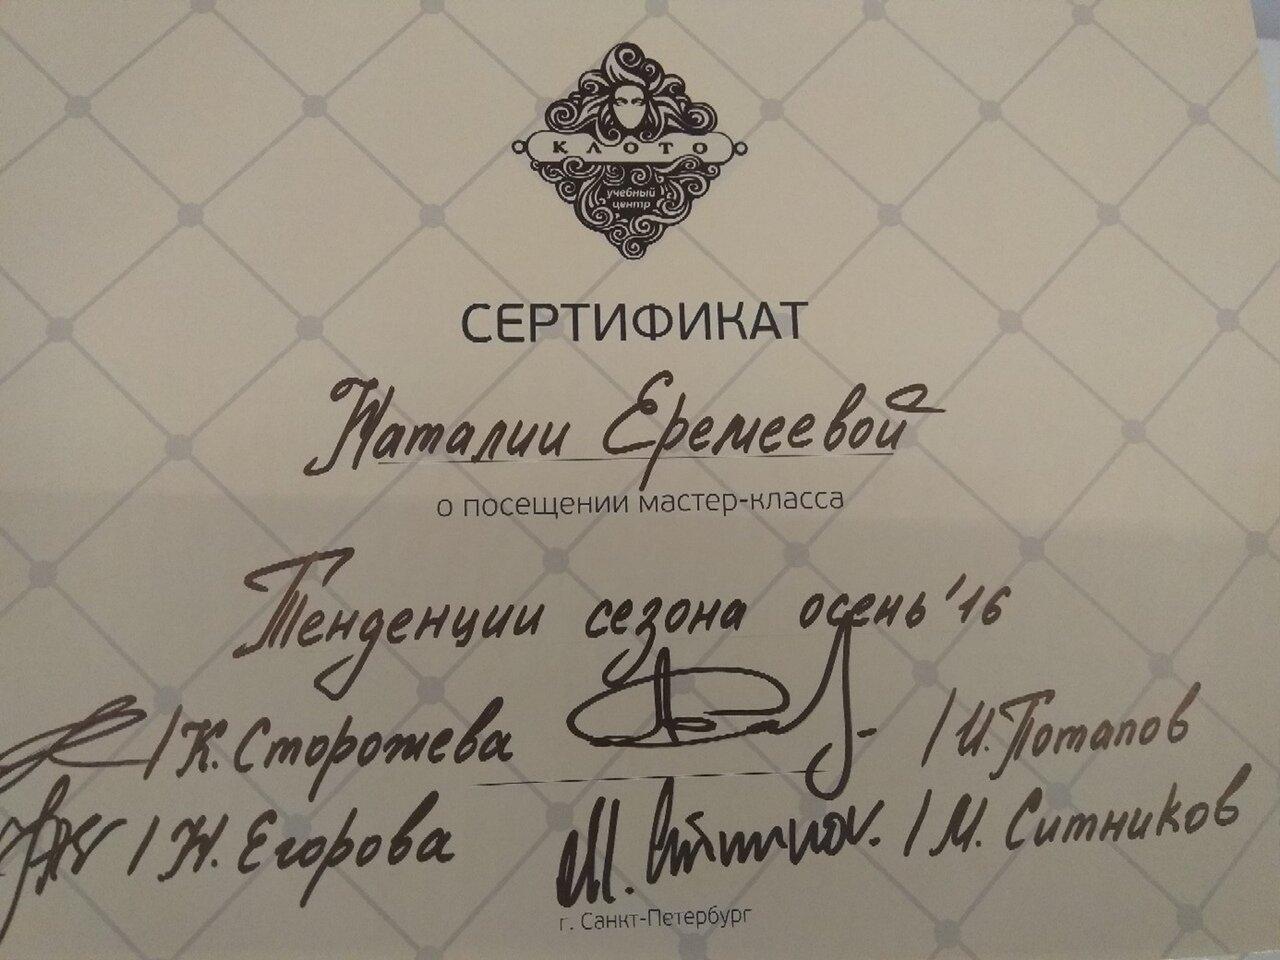 КЛОТО
учебный
центр
СЕРТИФИКАТ
Наталии Еремеевой
о посещении мастер-класса
Тенденции сезона осень'16
/К. Сторожева /И. Потапов
/Н. Егорова М. Ситников. /М. Ситников
г. Санкт-Петербург